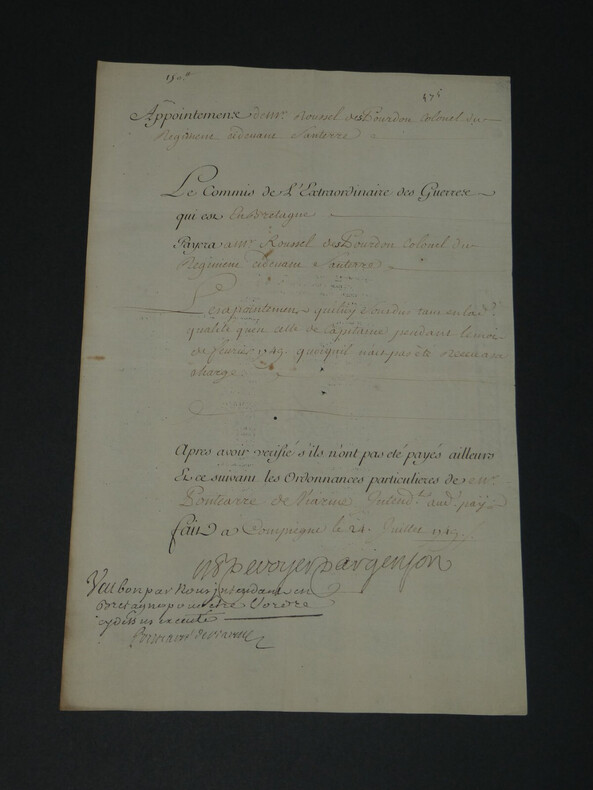 150.#
475
Appointemens de Mr. Roussel des Pourdon Colonel du
Regiment cidevant Santerre
Le Commis de L'Extraordinaire des Guerres
qui est En Bretagne
Payera a Mr. Roussel des Pourdon Colonel du
Regiment cidevant Santerre
Les apointemens quiluy sont dus tant en lad.
qualité qu'en celle de Capitaine pendant le mois
de fevrier 1749. quoyquil n'ait pas été
charge
Apres avoir verifié s'ils n'ont pas eté payés ailleurs
& ce suivant les Ordonnances particulieres de Mr.
Pontcarré de Viarme Intend.t aud. pays
fait a Compiegne le 24. Juillet 1749.
M P de voyer d'argenson
Veu bon par Nous Intendant en
Bretagne pour estre l'ordre
cy dessus executé
Pontcarré de Viarme